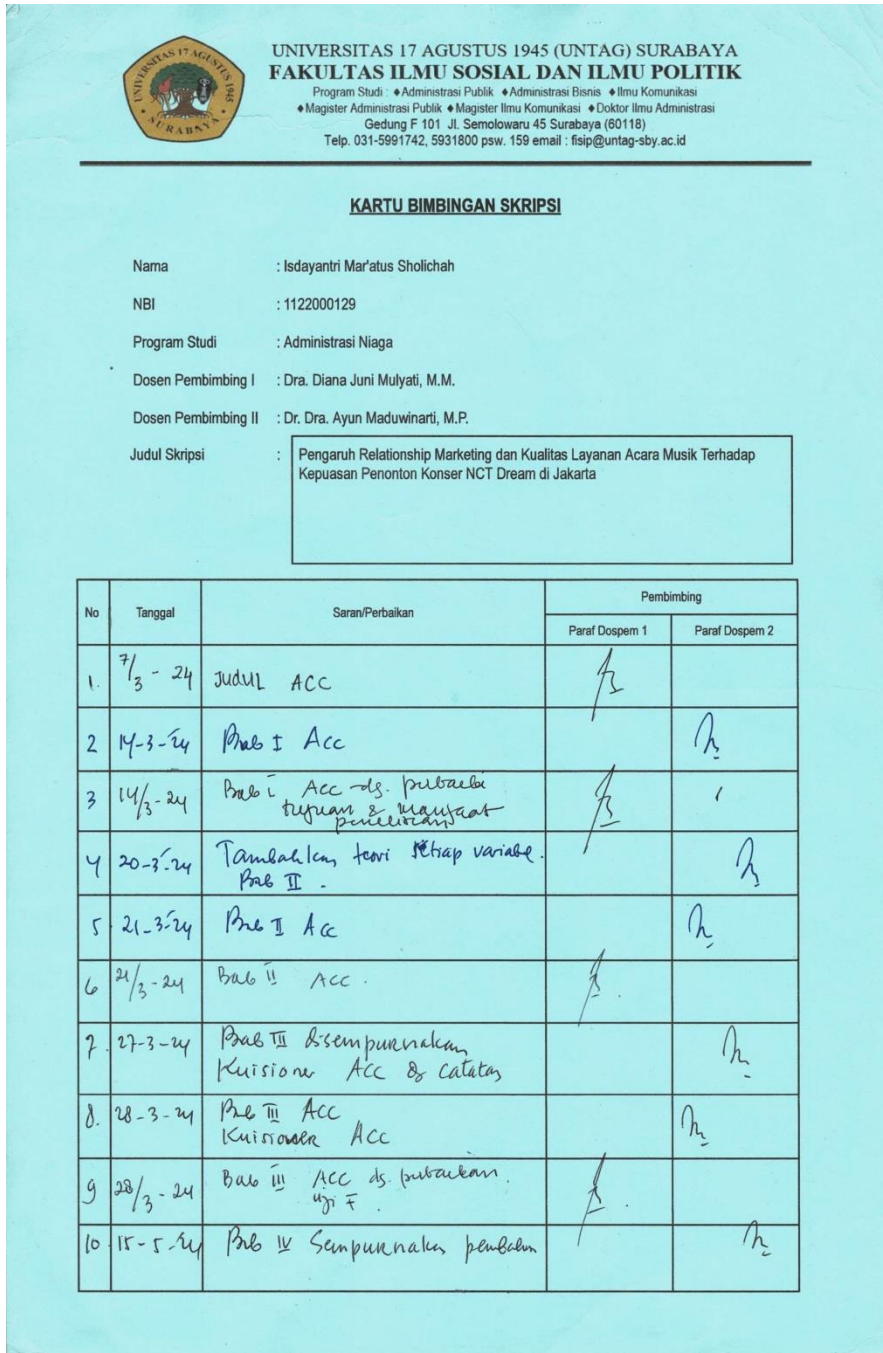 UNIVERSITAS 17 AGUSTUS 1945
SURABAYA
UNIVERSITAS 17 AGUSTUS 1945 (UNTAG) SURABAYA
FAKULTAS ILMU SOSIAL DAN ILMU POLITIK
Program Studi : ♦Administrasi Publik ♦Administrasi Bisnis ♦Ilmu Komunikasi
♦Magister Administrasi Publik ♦Magister Ilmu Komunikasi ♦Doktor Ilmu Administrasi
Gedung F 101 Jl. Semolowaru 45 Surabaya (60118)
Telp. 031-5991742, 5931800 psw. 159 email : fisip@untag-sby.ac.id
KARTU BIMBINGAN SKRIPSI
Nama : Isdayantri Mar'atus Sholichah
NBI : 1122000129
Program Studi : Administrasi Niaga
Dosen Pembimbing I : Dra. Diana Juni Mulyati, M.M.
Dosen Pembimbing II : Dr. Dra. Ayun Maduwinarti, M.P.
Judul Skripsi : Pengaruh Relationship Marketing dan Kualitas Layanan Acara Musik Terhadap
Kepuasan Penonton Konser NCT Dream di Jakarta
No Tanggal Saran/Perbaikan Pembimbing
Paraf Dospem 1 Paraf Dospem 2
1. 7/3 - 24 JUDUL ACC
2 14-3-24 Bab I Acc
3 14/3-24 Bab I ACC dg.
tujuan & manfaat
penelitian
4 20-3-24 Tambahkan teori setiap variabel.
Bab II .
5 21-3-24 Bab II Acc
6 21/3-24 Bab II ACC .
7. 27-3-24 Bab III disempurnakan
Kuisioner ACC & catatan
8. 28-3-24 Bab III ACC
Kuisioner ACC
9 28/3-24 Bab III ACC dg. perbaikan.
uji F .
10 15-5-24 Bab IV Sempurnakan